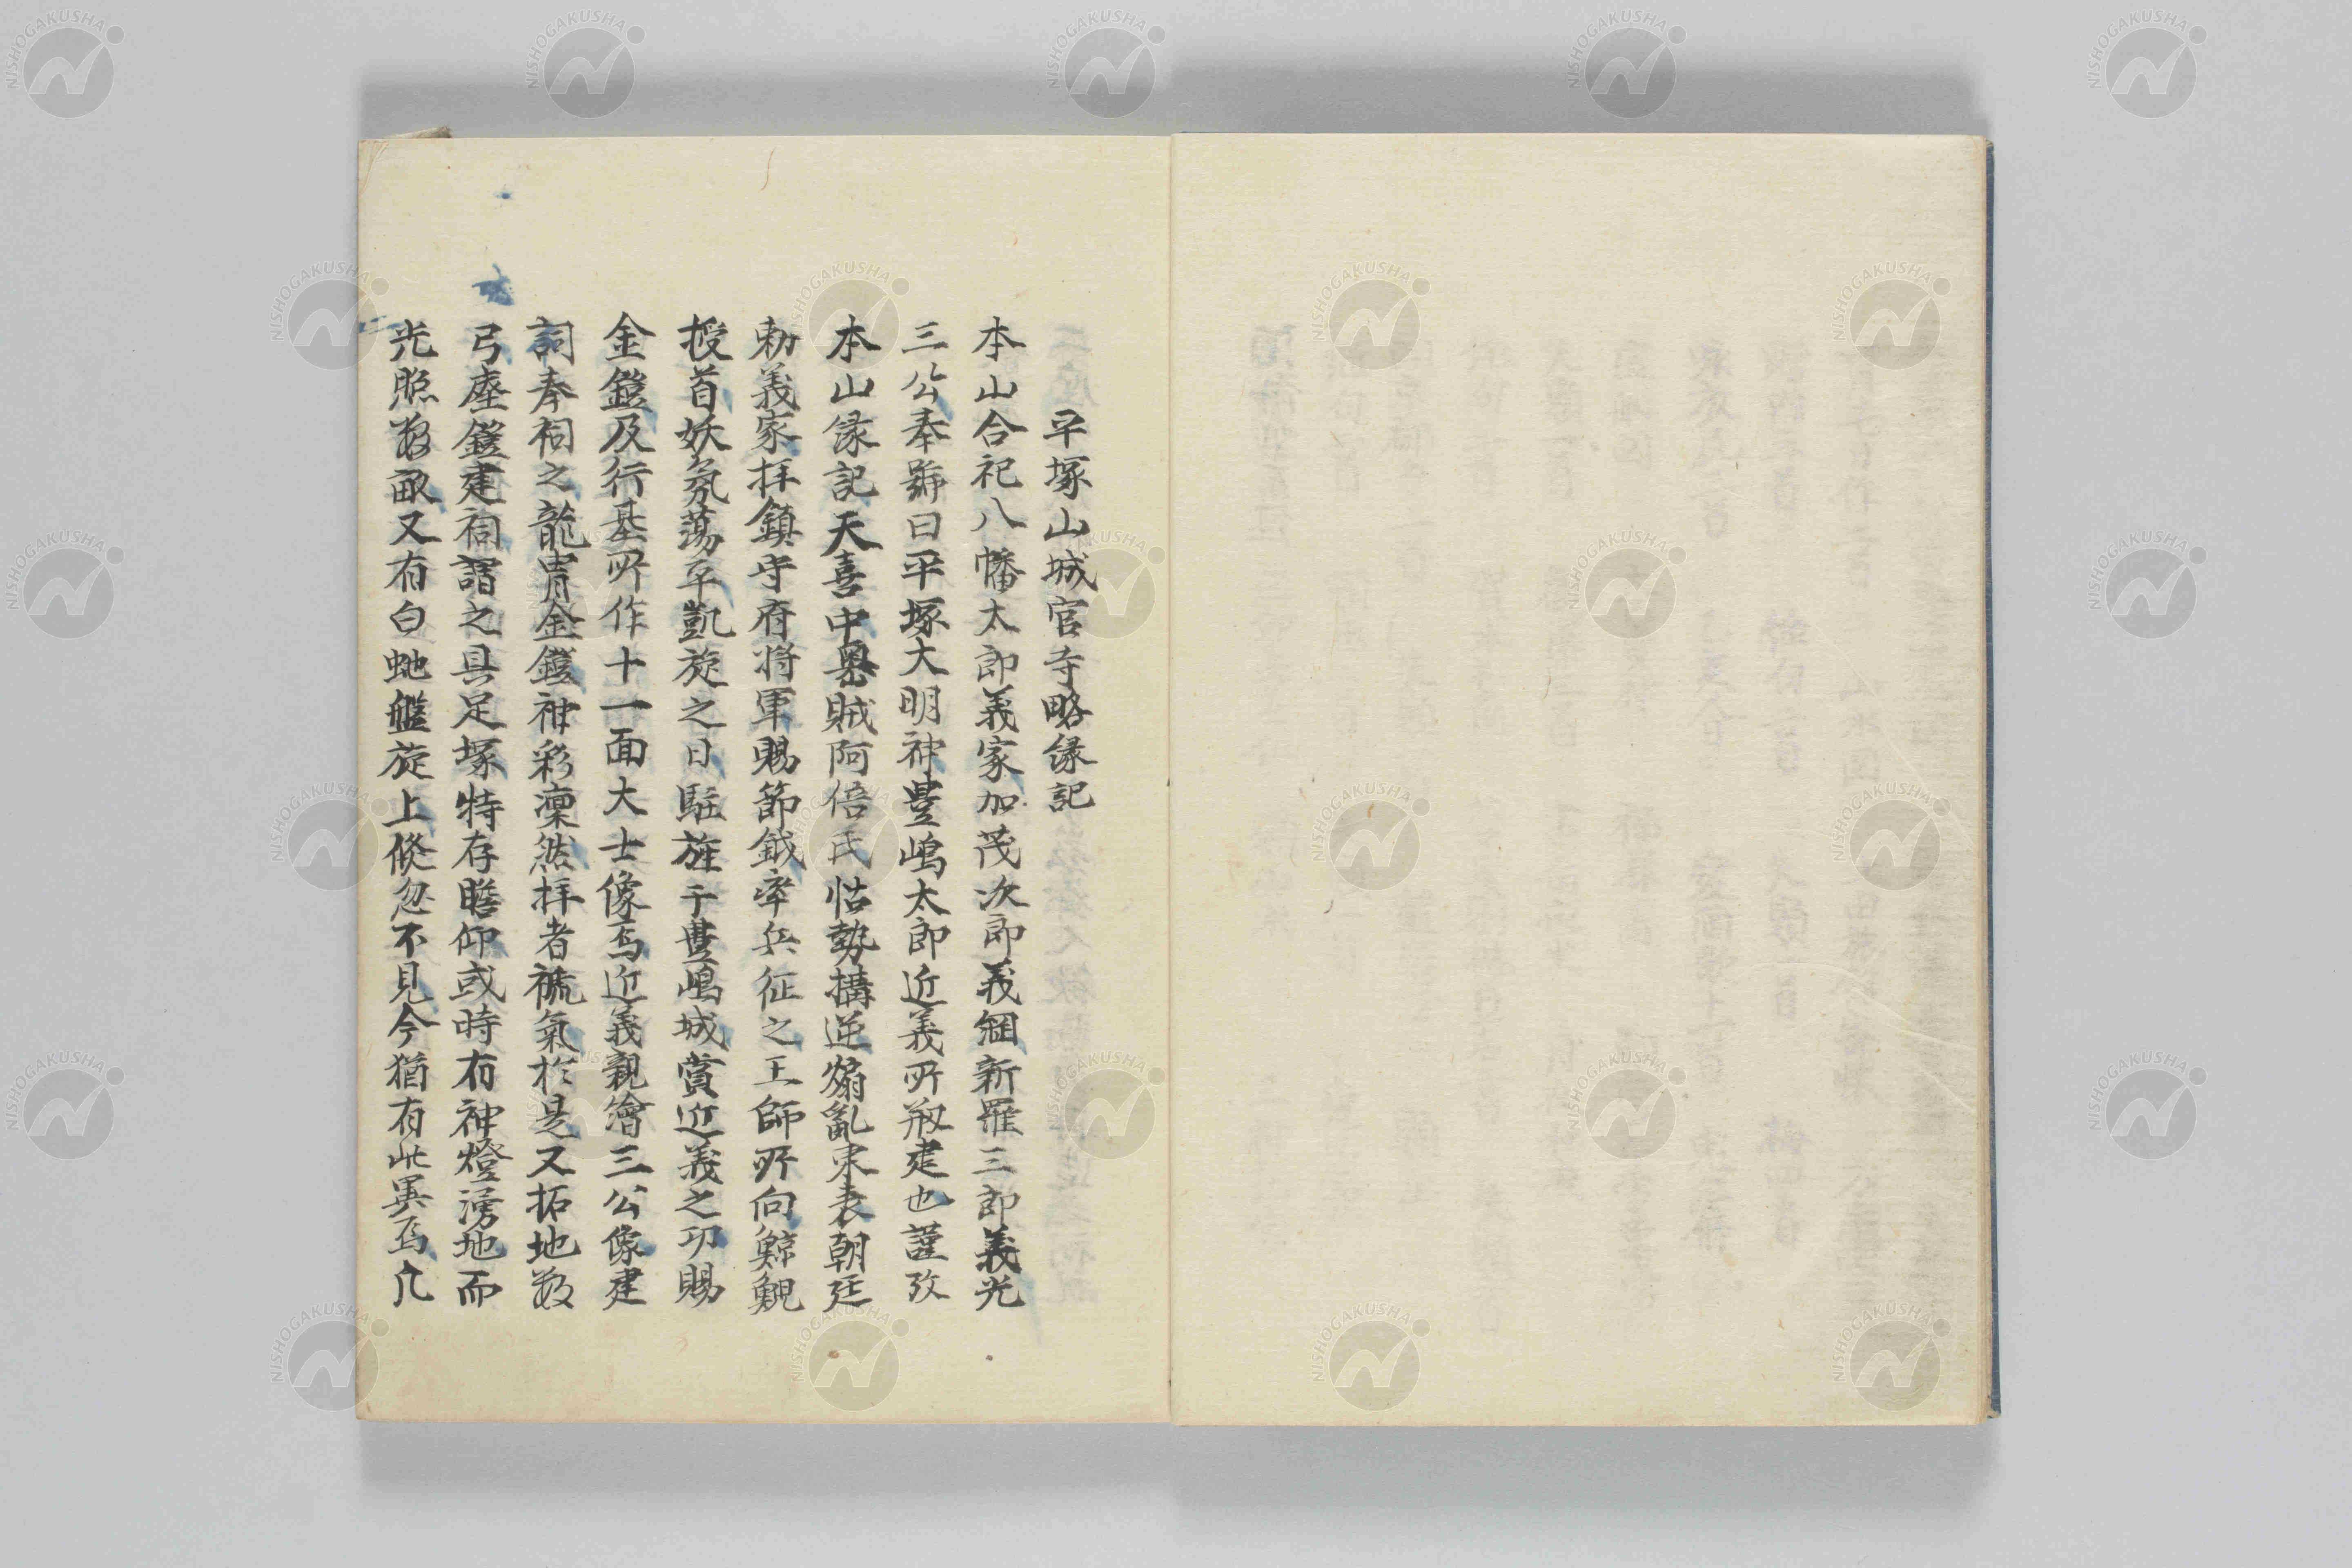 平塚山城官寺略縁記
本山合祀八幡太郎義家加茂次郎義綱新羅三郎義光
三公奉號曰平塚大明神豊嶋太郎近義所剏建也謹攷
本山縁記天喜中奥賊阿倍氏怙勢搆逆煽亂東表朝廷
勅義家拝鎮守府将軍賜節鉞率兵征之王師所向鯨鯢
授首妖氛蕩平凱旋之日駐旌于豊嶋城賞近義之功賜
金鎧及行基所作十一面大士像焉近義親繪三公像建
詞奉祠之龍冑金鎧神彩凜然拝者褫氣於是又拓地数
弓塵鎧建祠謂之具足塚特存瞻仰或時有神燈湧地而
光照数畝又有白虵盤旋上倐忽不見今猶有此異焉凢
NISHOGAKUSHA